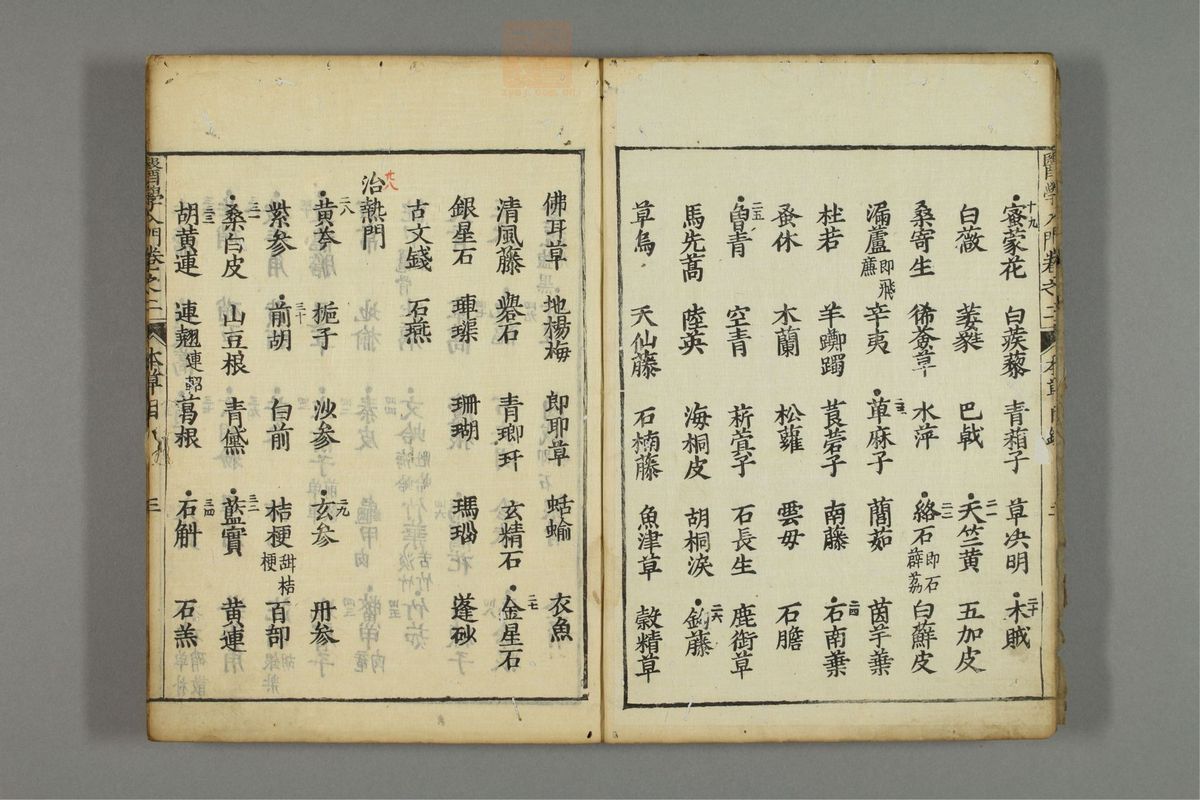 醫學入門卷之二 本草目錄
十九 蜜蒙花 白蒺藜 青葙子 草决明 二十 木賊
白薇 萎蕤 巴戟 二一 天竺黄 五加皮
桑寄生 狶薟草 水萍 二二 絡石 即石薜荔 白蘚皮
漏蘆 即飛蘆 辛夷 二三 萆麻子 䕡茹 茵芋葉
杜若 羊躑躅 莨菪子 南藤 二四 石南葉
蚤休 木蘭 松蘿 雲毋 石膽
二五 曾青 空青 菥蓂子 石長生 鹿銜草
馬先蒿 陸英 海桐皮 胡桐淚 二六 鈎藤
草烏 天仙藤 石楠藤 魚津草 穀精草
佛耳草 地楊梅 郎耶草 蛞蝓 衣魚
清風藤 礜石 青瑯玕 玄精石 二七 金星石
銀星石 硨磲 珊瑚 瑪瑙 蓬砂
古文錢 石燕
治熱門
二八 黄芩 梔子 沙參 二九 玄參 丹參
紫參 三十 前胡 白前 桔梗 甜桔梗 百部
三一 桑白皮 山豆根 青黛 三二 藍實 黄連
三三 胡黄連 連翹 連軺 葛根 三四 石斛 石羔
醫學入門卷之二 本草目 三